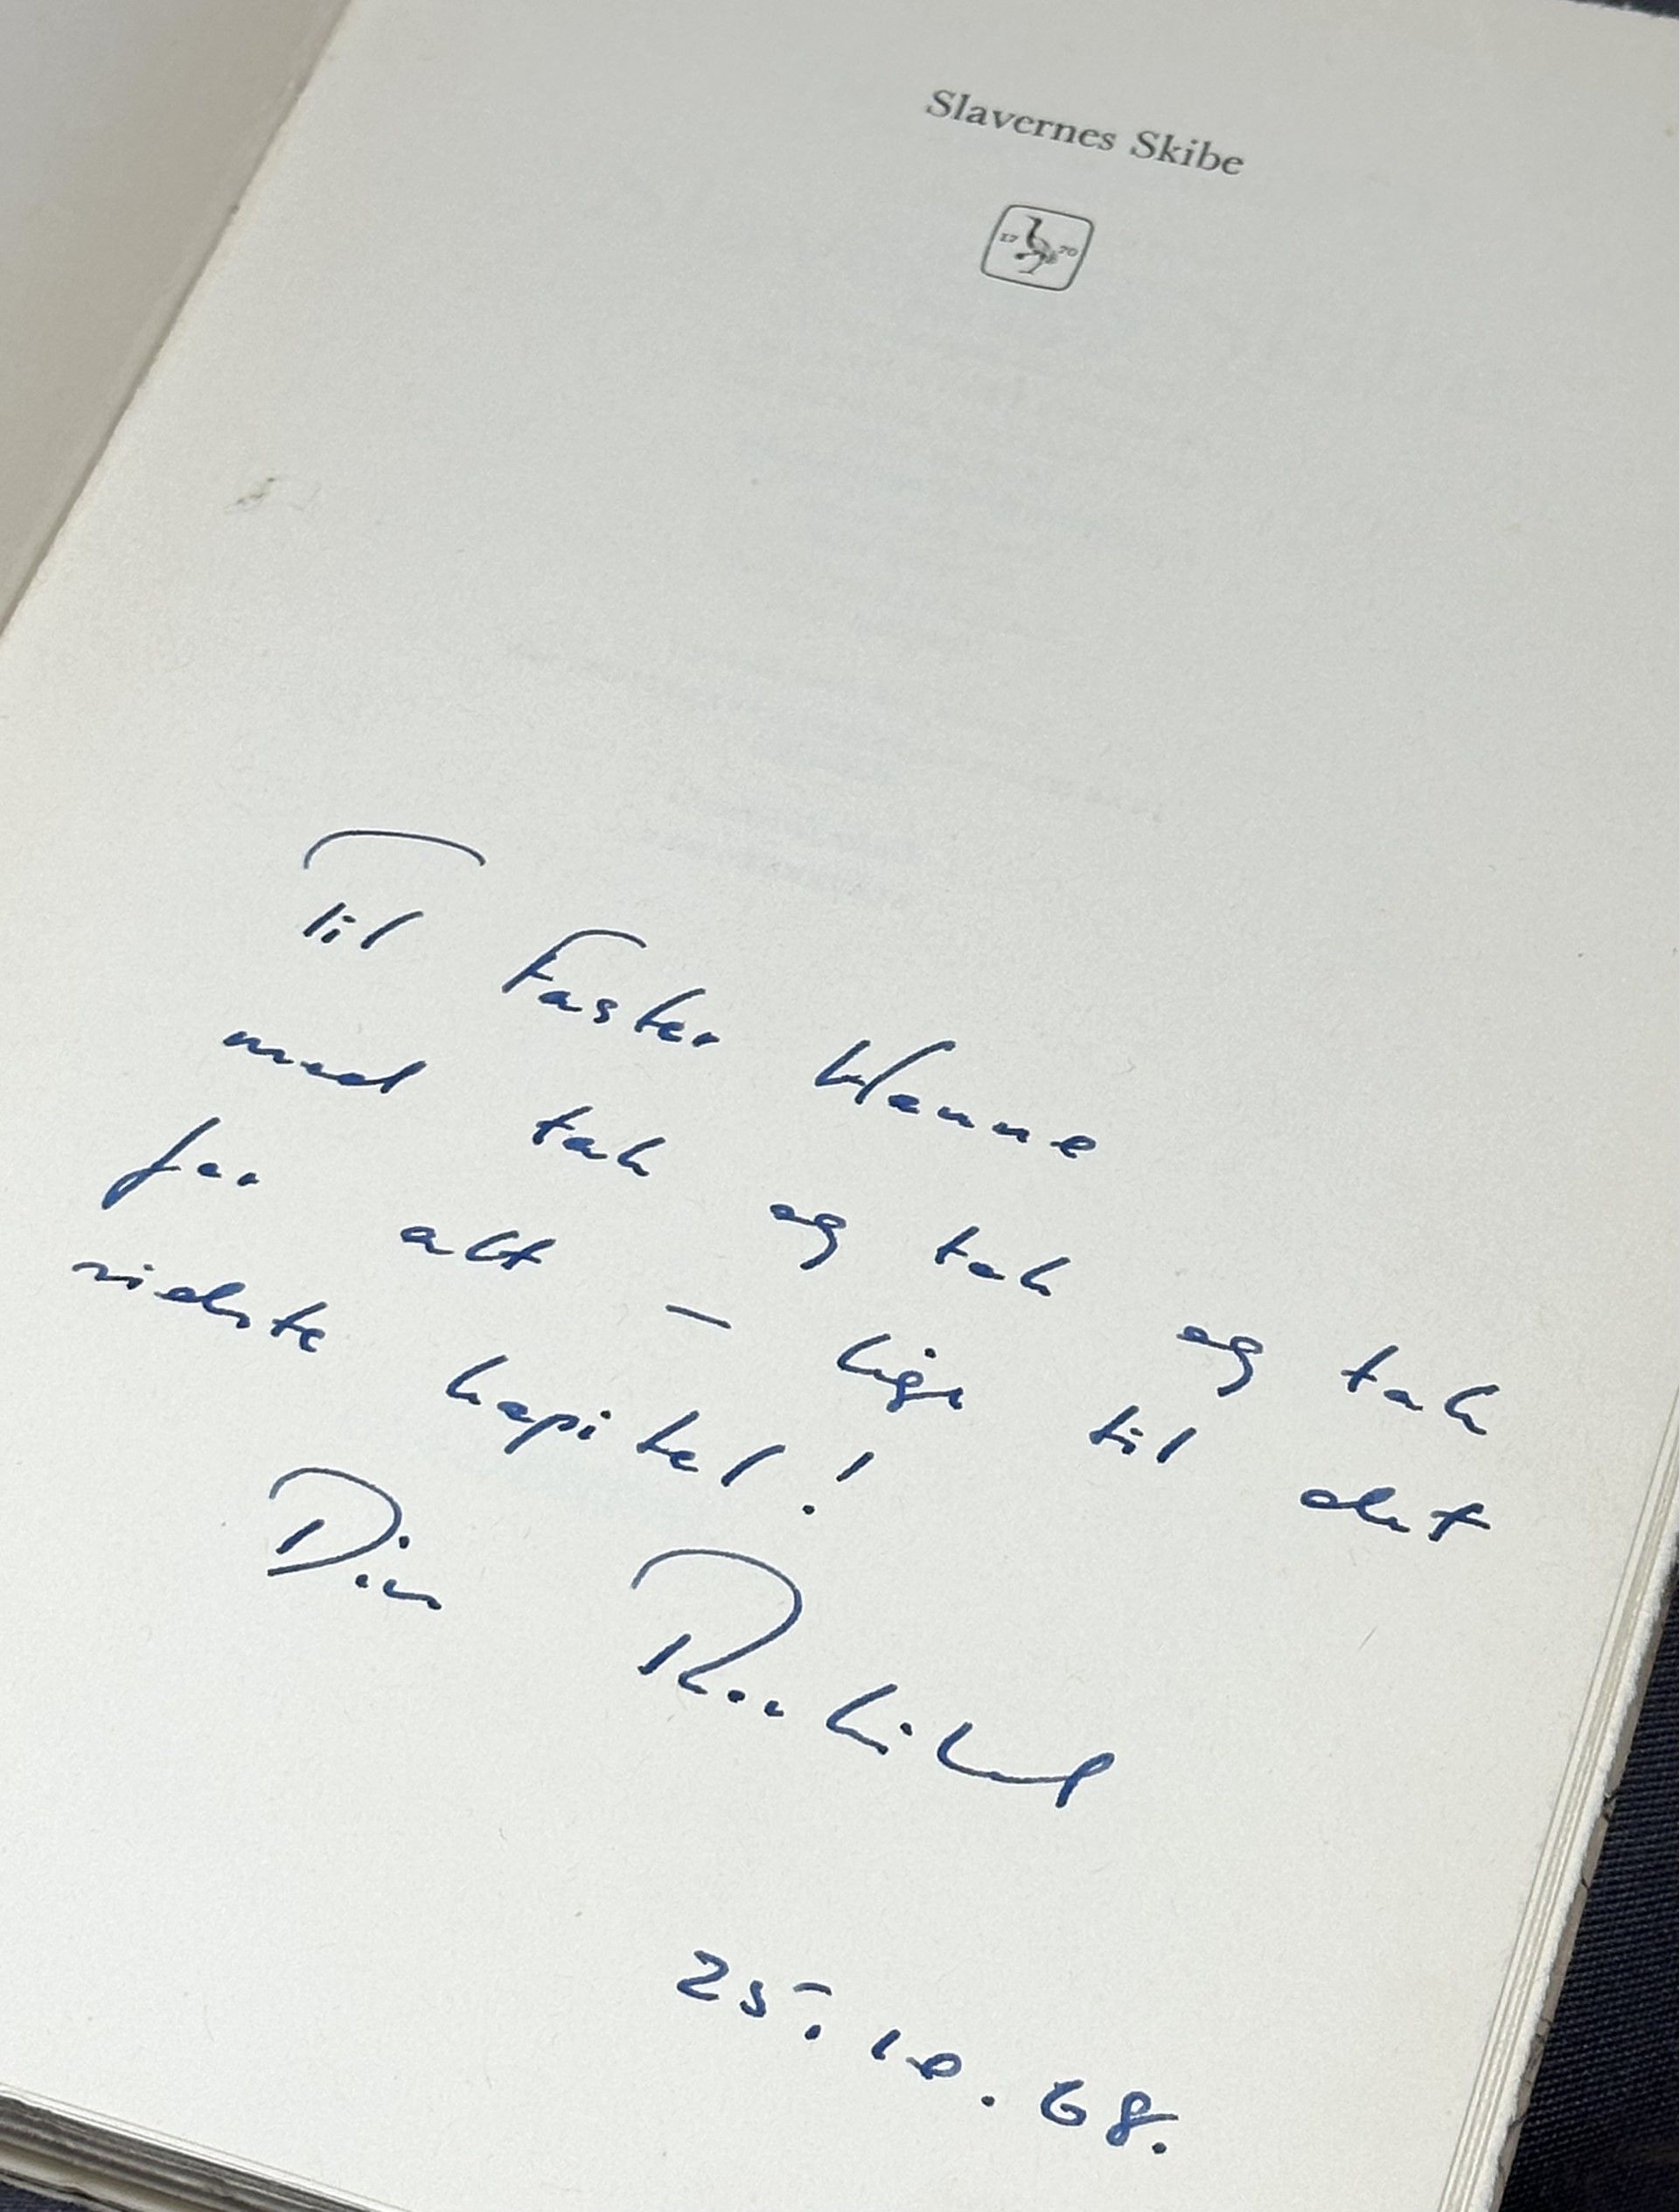 Slavernes Skibe
17 70
Til Faster Hanne
med tak og tak og tak
for alt – lige til det
sidste kapitel!
Din Thorkild
25. 10. 68.